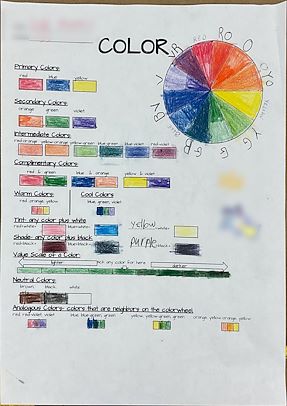 COLOR
RED RO O OYO Y YG G GB B BV V VR
Primary Colors:
red blue yellow
Secondary Colors:
orange green violet
Intermediate Colors:
red orange yellow orange yellow green blue green blue violet red violet
Complimentary Colors:
red & green blue & orange yellow & violet
Warm Colors Cool Colors
red, orange, yellow blue, green, violet
Tint- any color plus white
red+white= blue+white= yellow +white=
Shade- any color plus black
red+black= green+black= purple +black=
Value Scale of a Color:
lighter pick any color for here darker
Neutral Colors:
brown black white
Analogous Colors- colors that are neighbors on the colorwheel
red, red-violet, violet blue, blue green, green yellow, yellow-green, green orange, yellow orange, yellow